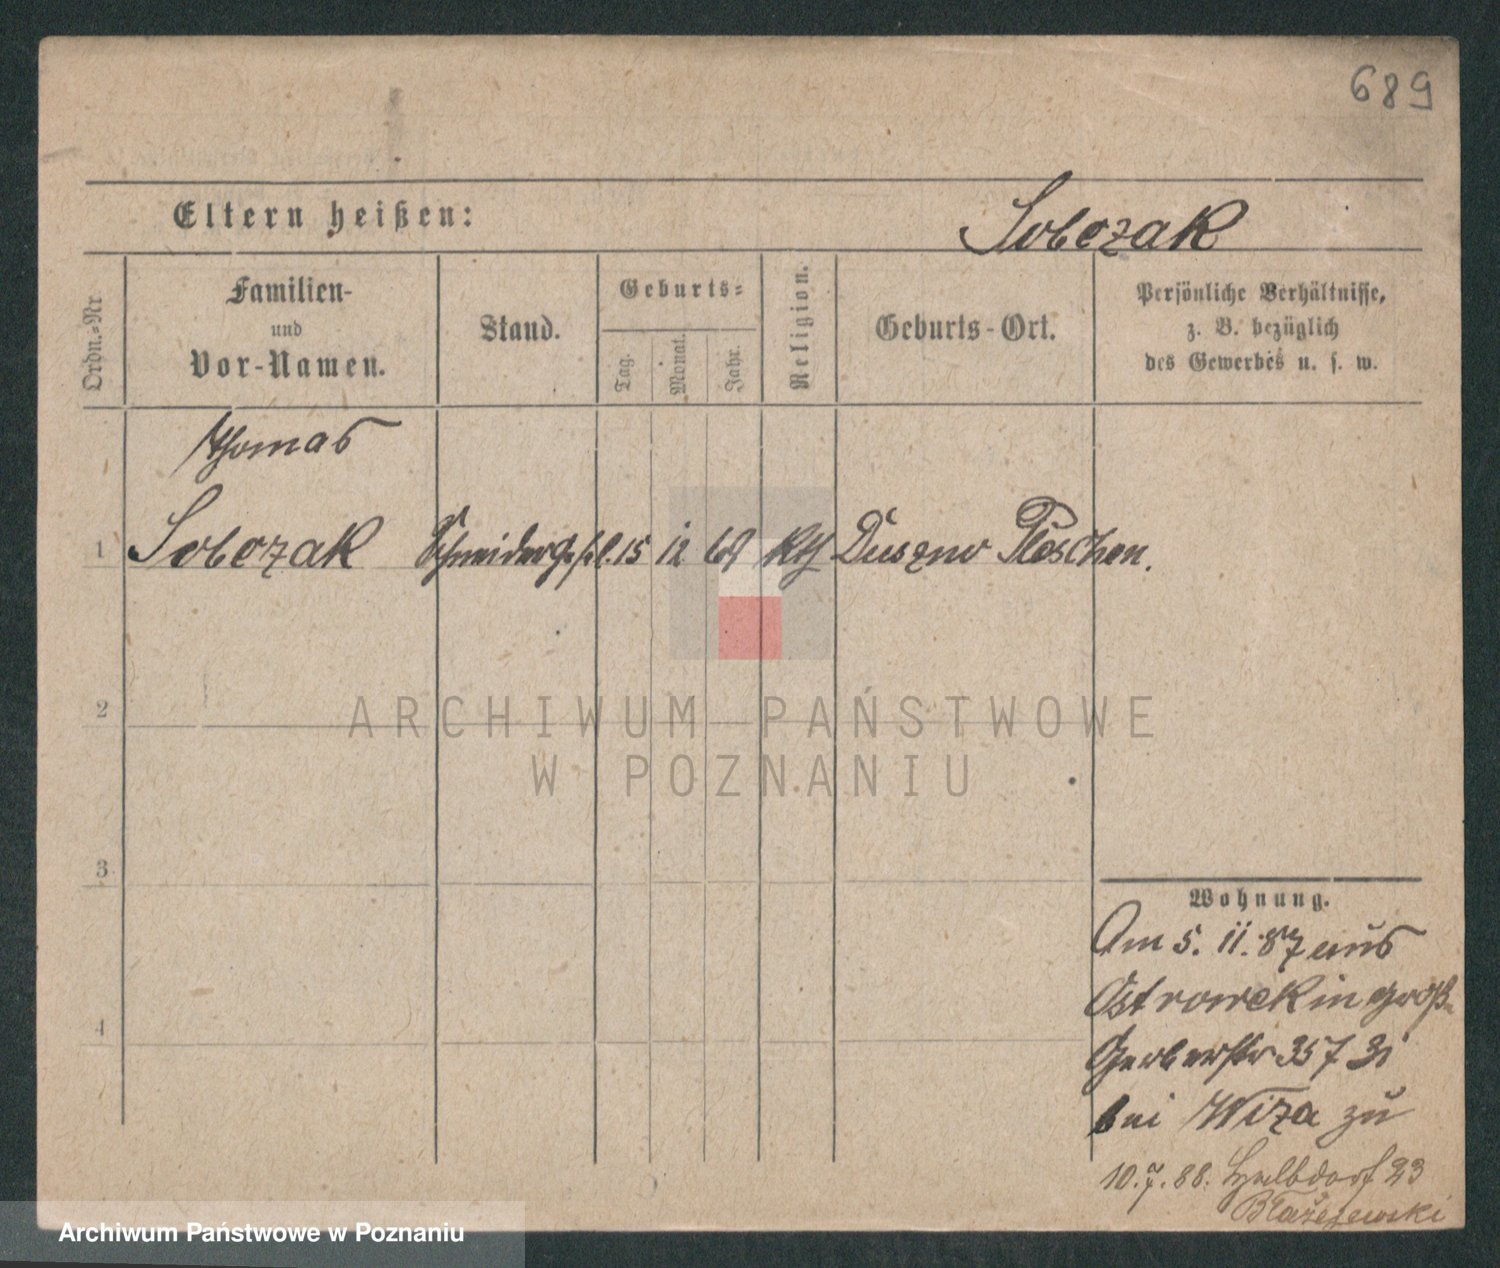 689
Eltern heißen:
Sobczak
Ordn.=Nr.
Familien-
und
Vor-Namen.
Stand.
Geburts=
Tag.
Monat.
Jahr.
Religion.
Geburts-Ort.
Persönliche Verhältnisse,
z. B. bezüglich
des Gewerbes u. s. w.
Thomas
1 Sobczak Schneidergesel. 15 12 69 Kth Duszno Pleschen.
2
3
4
ARCHIWUM PAŃSTWOWE
W POZNANIU
Wohnung.
Am 5. 11. 87 aus
Ostrowek in Groß
Gerberstr 35
bei Wiza zu
10.7.88. Halbdorf 23
Błażejewski
Archiwum Państwowe w Poznaniu